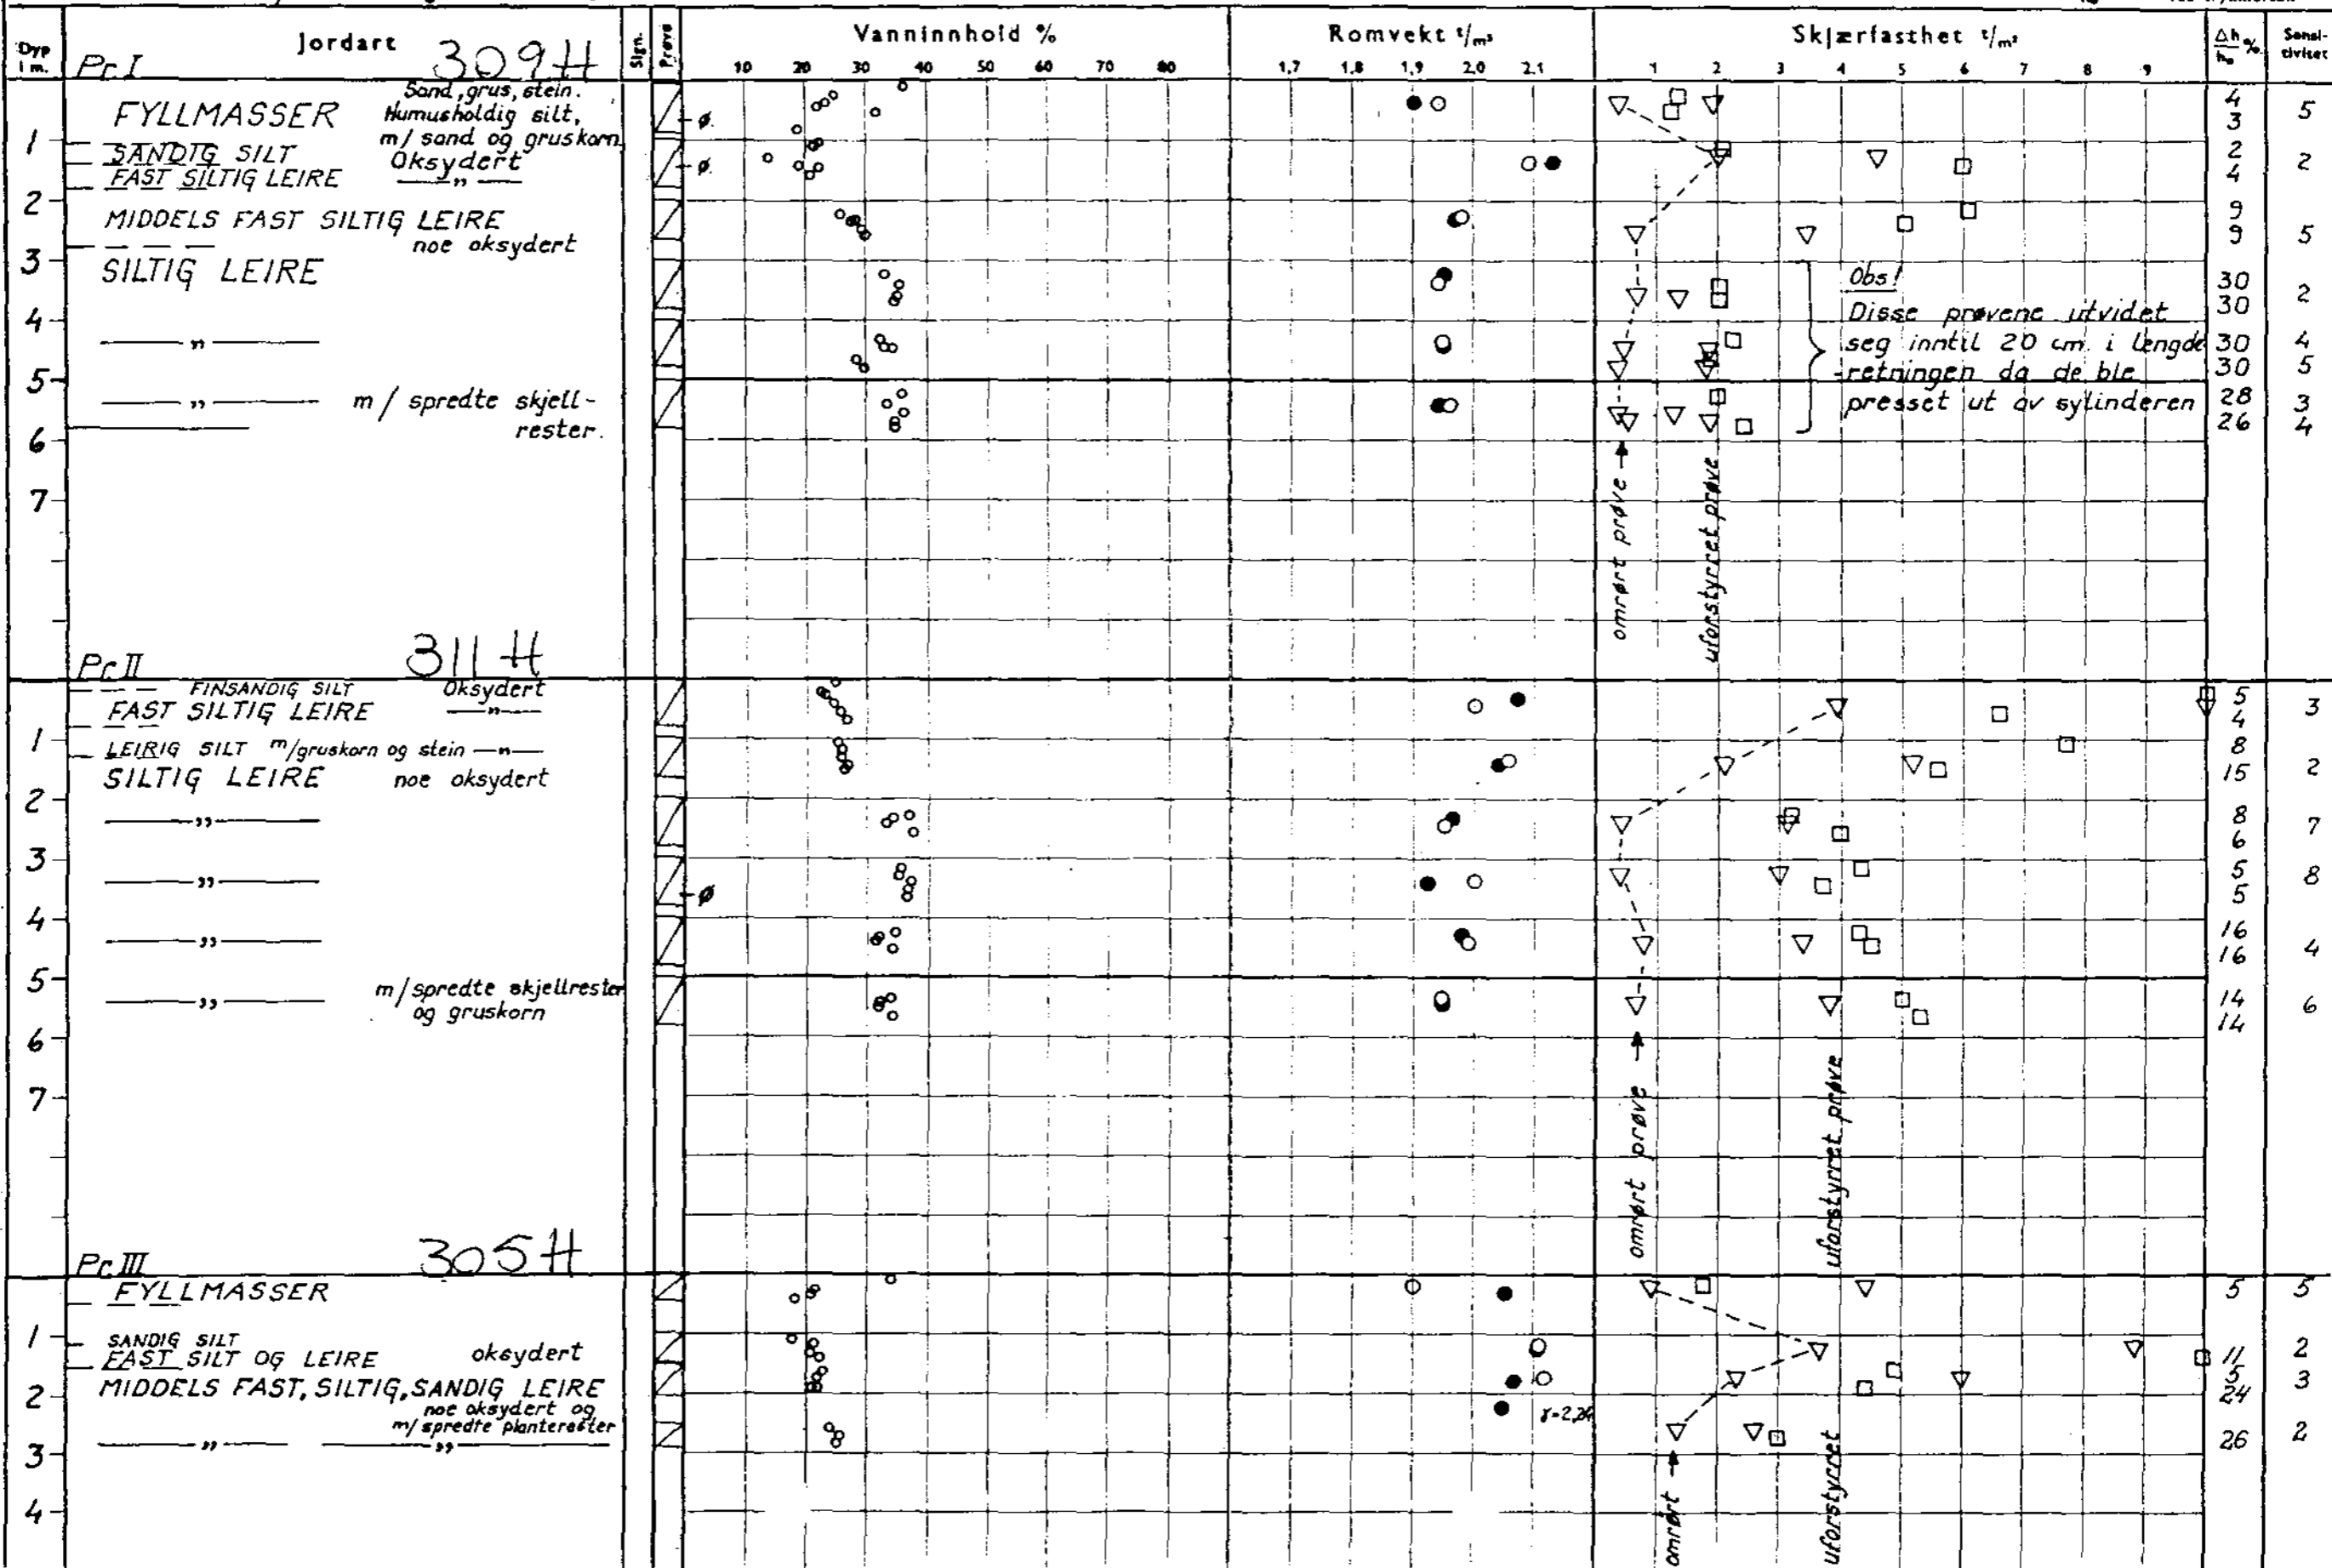 Dyp i m.
Jordart
Sign.
Prøve
Vanninnhold %
Romvekt t/m³
Skjærfasthet t/m²
Δh/h₀ %
Sensitivitet
10 20 30 40 50 60 70 80
1,7 1,8 1,9 2,0 2,1
1 2 3 4 5 6 7 8 9
Pr I 309H
Sand, grus, stein.
FYLLMASSER Humusholdig silt,
m/ sand og gruskorn
SANDIG SILT Oksydert
FAST SILTIG LEIRE —"—
MIDDELS FAST SILTIG LEIRE
noe oksydert
SILTIG LEIRE
—"—
—"— m/ spredte skjell-
rester.
1
2
3
4
5
6
7
ø
ø
Obs!
Disse prøvene utvidet
seg inntil 20 cm. i lengde
-retningen da de ble
presset ut av sylinderen
omrørt prøve
uforstyrret prøve
4
3 5
2
4 2
9
9 5
30
30 2
30 4
30 5
28 3
26 4
Pr II 311H
FINSANDIG SILT Oksydert
FAST SILTIG LEIRE —"—
LEIRIG SILT m/gruskorn og stein —"—
SILTIG LEIRE noe oksydert
—"—
—"—
—"—
—"— m/spredte skjellrester
og gruskorn
1
2
3
4
5
6
7
ø
omrørt prøve
uforstyrret prøve
5
4 3
8
15 2
8
6 7
5
5 8
16
16 4
14
14 6
Pr III 305H
FYLLMASSER
SANDIG SILT
FAST SILT OG LEIRE oksydert
MIDDELS FAST, SILTIG, SANDIG LEIRE
noe oksydert og
m/spredte planterester
—"— —"—
1
2
3
4
omrørt
uforstyrret
5 5
11 2
5
24 3
26 2